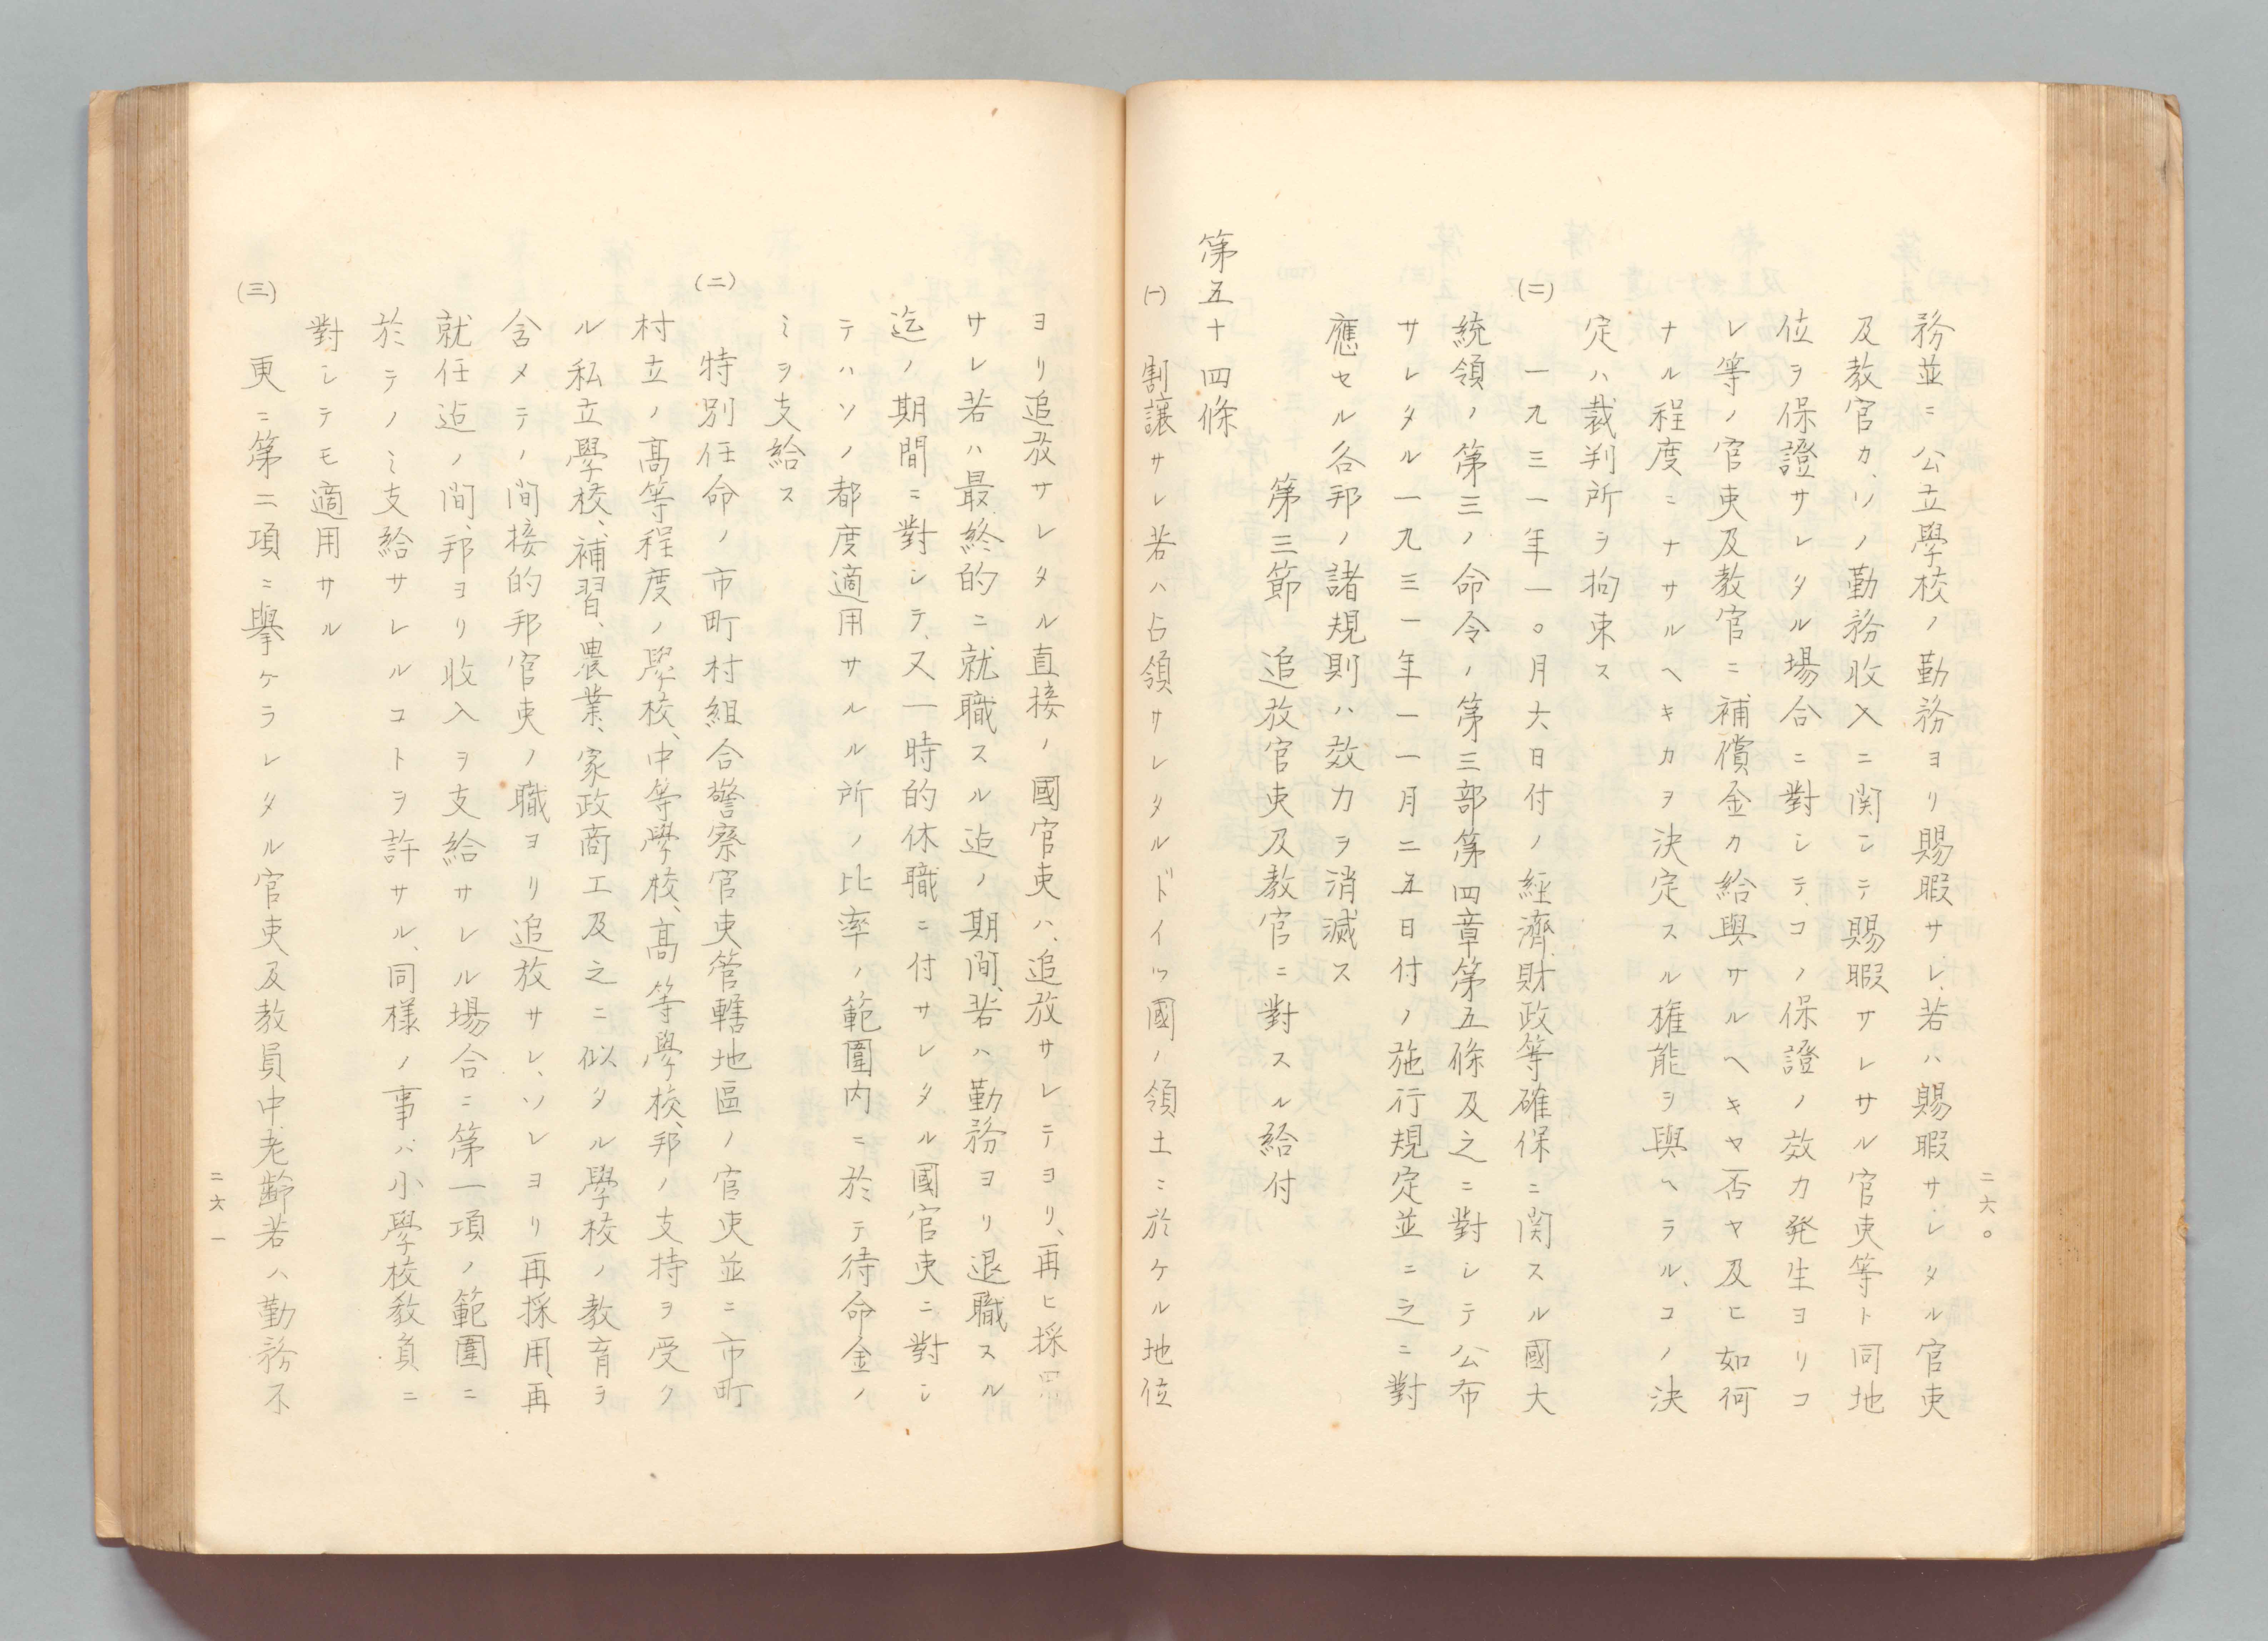 二六〇
務並ニ公立學校ノ勤務ヨリ賜暇サレ、若ハ賜暇サレタル官吏
及教官カ、ソノ勤務收入ニ関シテ賜暇サレサル官吏等ト同地
位ヲ保證サレタル場合ニ對シテ、コノ保證ノ效力発生ヨリコ
レ等ノ官吏及教官ニ補償金カ給與サルヘキヤ否ヤ及ヒ如何
ナル程度ニナサルヘキカヲ決定スル権能ヲ與ヘラル、コノ決
定ハ裁判所ヲ拘束ス
(二)　一九三一年一〇月六日付ノ經濟財政等確保ニ関スル國大
統領ノ第三ノ命令ノ第三部第四章第五條及之ニ對シテ公布
サレタル一九三一年一一月二五日付ノ施行規定並ニ之ニ對
應セル各邦ノ諸規則ハ效力ヲ消滅ス
第三節　追放官吏及教官ニ對スル給付
第五十四條
(一)　割讓サレ若ハ占領サレタルドイツ國ノ領土ニ於ケル地位
ヨリ追放サレタル直接ノ國官吏ハ、追放サレテヨリ、再ヒ採用
サレ若ハ最終的ニ就職スル迄ノ期間、若ハ勤務ヨリ退職スル
迄ノ期間ニ對シテ、又一時的休職ニ付サレタル國官吏ニ對シ
テハソノ都度適用サルル所ノ比率ノ範圍内ニ於テ待命金ノ
ミヲ支給ス
(二)　特別任命ノ市町村組合警察官吏管轄地區ノ官吏並ニ市町
村立ノ高等程度ノ學校、中等學校、高等學校、邦ノ支持ヲ受ク
ル私立學校、補習、農業、家政商工及之ニ似タル學校ノ教育ヲ
含メテノ間接的邦官吏ノ職ヨリ追放サレ、ソレヨリ再採用、再
就任迄ノ間、邦ヨリ收入ヲ支給サレル場合ニ第一項ノ範圍ニ
於テノミ支給サレルコトヲ許サル、同様ノ事ハ小學校教員ニ
對シテモ適用サル
(三)　更ニ第二項ニ擧ケラレタル官吏及教員中、老齡若ハ勤務不
二六一